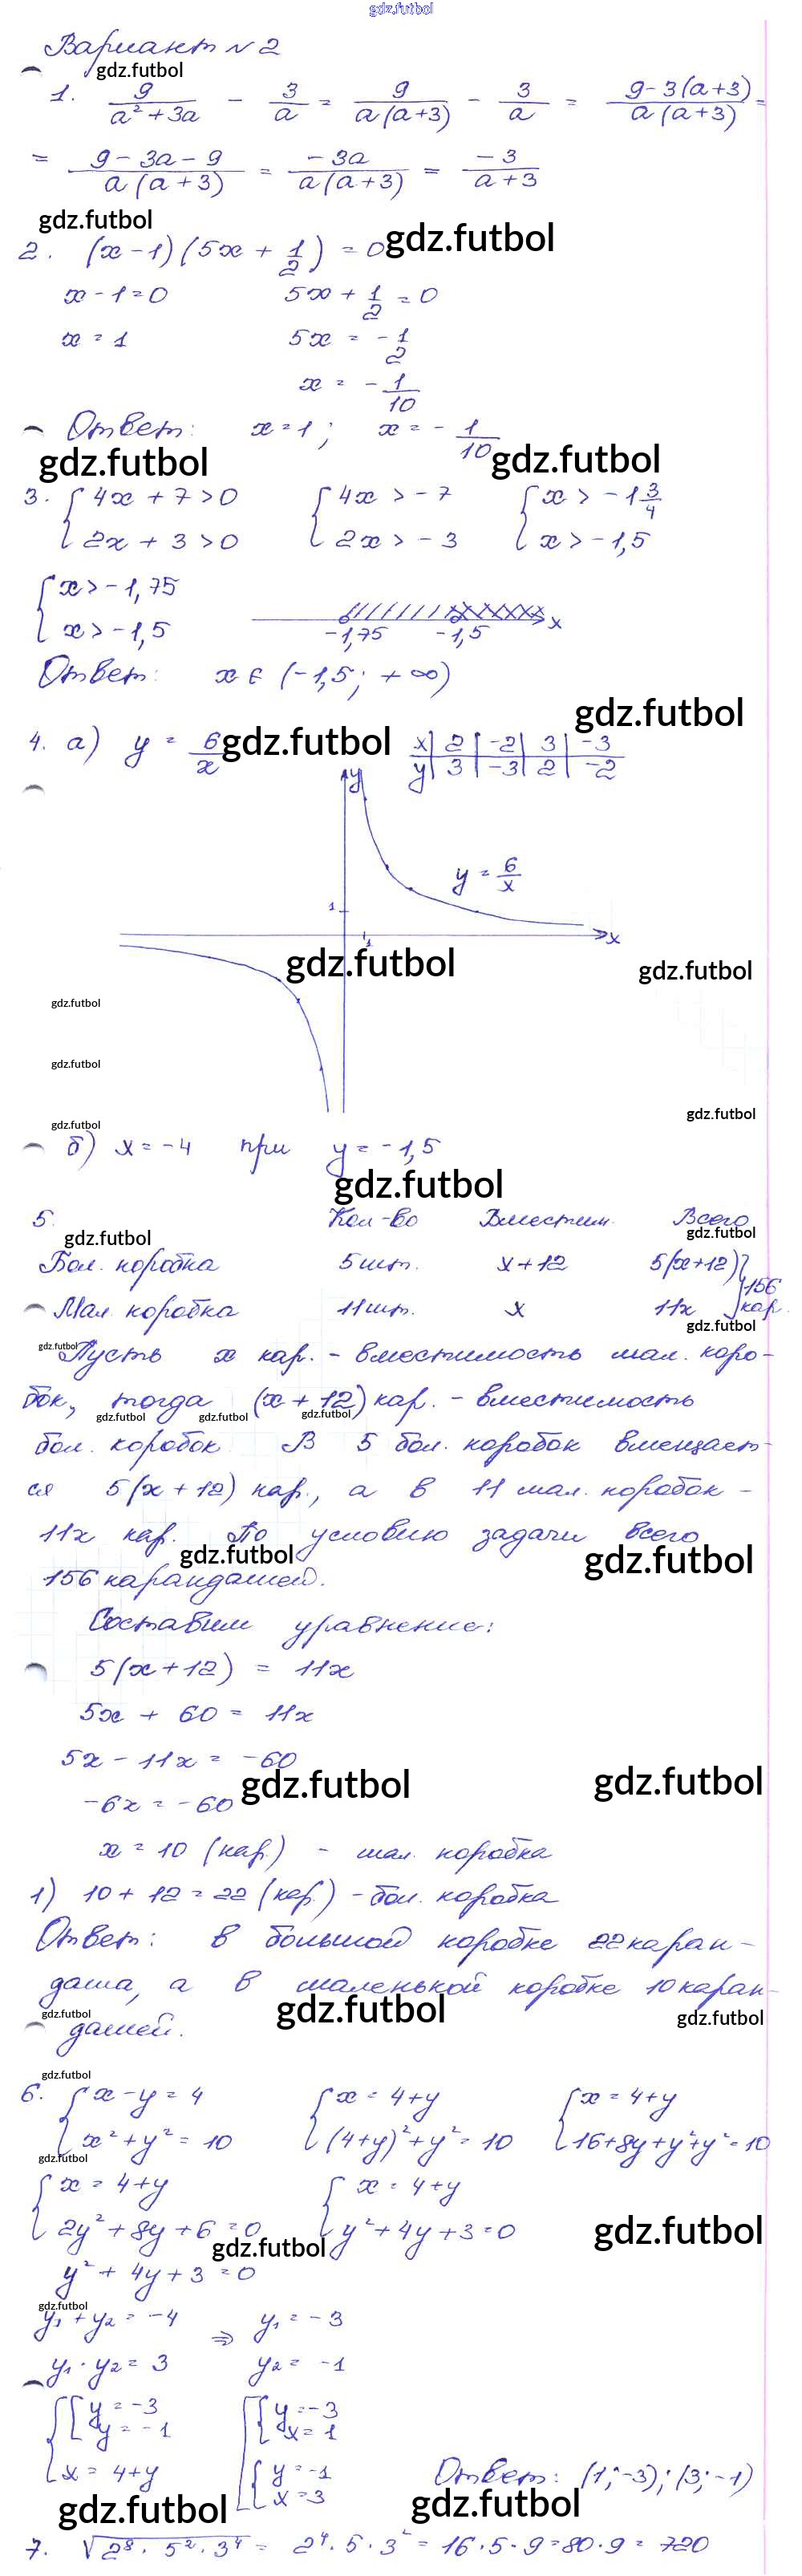 gdz.futbol
Вариант №2
gdz.futbol
1. 9/(a²+3a) - 3/a = 9/(a(a+3)) - 3/a = (9-3(a+3))/(a(a+3)) =
= (9-3a-9)/(a(a+3)) = -3a/(a(a+3)) = -3/(a+3)
gdz.futbol
2. (x-1)(5x+1/2) = 0 gdz.futbol
x-1=0 5x+1/2=0
x=1 5x = -1/2
x = -1/10
Ответ: x=1; x=-1/10
gdz.futbol gdz.futbol
3. {4x+7>0 {4x>-7 {x>-1 3/4
{2x+3>0 {2x>-3 {x>-1,5
{x>-1,75
{x>-1,5 -1,75 -1,5 x
Ответ: x∈(-1,5; +∞)
gdz.futbol
4. а) y = 6/x gdz.futbol x| 2 | -2 | 3 | -3
y| 3 | -3 | 2 | -2
y
y = 6/x
1
1 x
gdz.futbol gdz.futbol
gdz.futbol
gdz.futbol
gdz.futbol
gdz.futbol
б) x=-4 при y=-1,5
gdz.futbol
5. Кол-во Вместим. Всего
gdz.futbol gdz.futbol
Бол. коробка 5шт. x+12 5(x+12)} 156
Мал. коробка 11шт. x 11x } кар.
gdz.futbol
gdz.futbol
Пусть x кар. - вместимость мал. коро-
бок, тогда (x+12) кар. - вместимость
gdz.futbol gdz.futbol gdz.futbol
бол. коробок. В 5 бол. коробок вмещает-
ся 5(x+12) кар., а в 11 мал. коробок -
11x кар. По условию задачи всего
gdz.futbol gdz.futbol
156 карандашей.
Составим уравнение:
5(x+12) = 11x
5x + 60 = 11x
5x - 11x = -60
gdz.futbol gdz.futbol
-6x = -60
x = 10 (кар.) - мал. коробка
1) 10+12=22 (кар.) - бол. коробка
Ответ: в большой коробке 22 каран-
даша, а в маленькой коробке 10 каран-
gdz.futbol gdz.futbol gdz.futbol
дашей.
gdz.futbol
6. {x-y=4 {x=4+y {x=4+y
{x²+y²=10 {(4+y)²+y²=10 {16+8y+y²+y²=10
gdz.futbol
{x=4+y {x=4+y
{2y²+8y+6=0 {y²+4y+3=0 gdz.futbol
gdz.futbol
y²+4y+3=0
gdz.futbol
y₁+y₂=-4 ⇒ y₁=-3
y₁·y₂=3 y₂=-1
{[y=-3 [{y=-3
{[y=-1 [{x=1
{x=4+y [{y=-1 Ответ: (1;-3); (3;-1)
[{x=3
gdz.futbol gdz.futbol
7. √(2⁸·5²·3⁴) = 2⁴·5·3² = 16·5·9=80·9=720